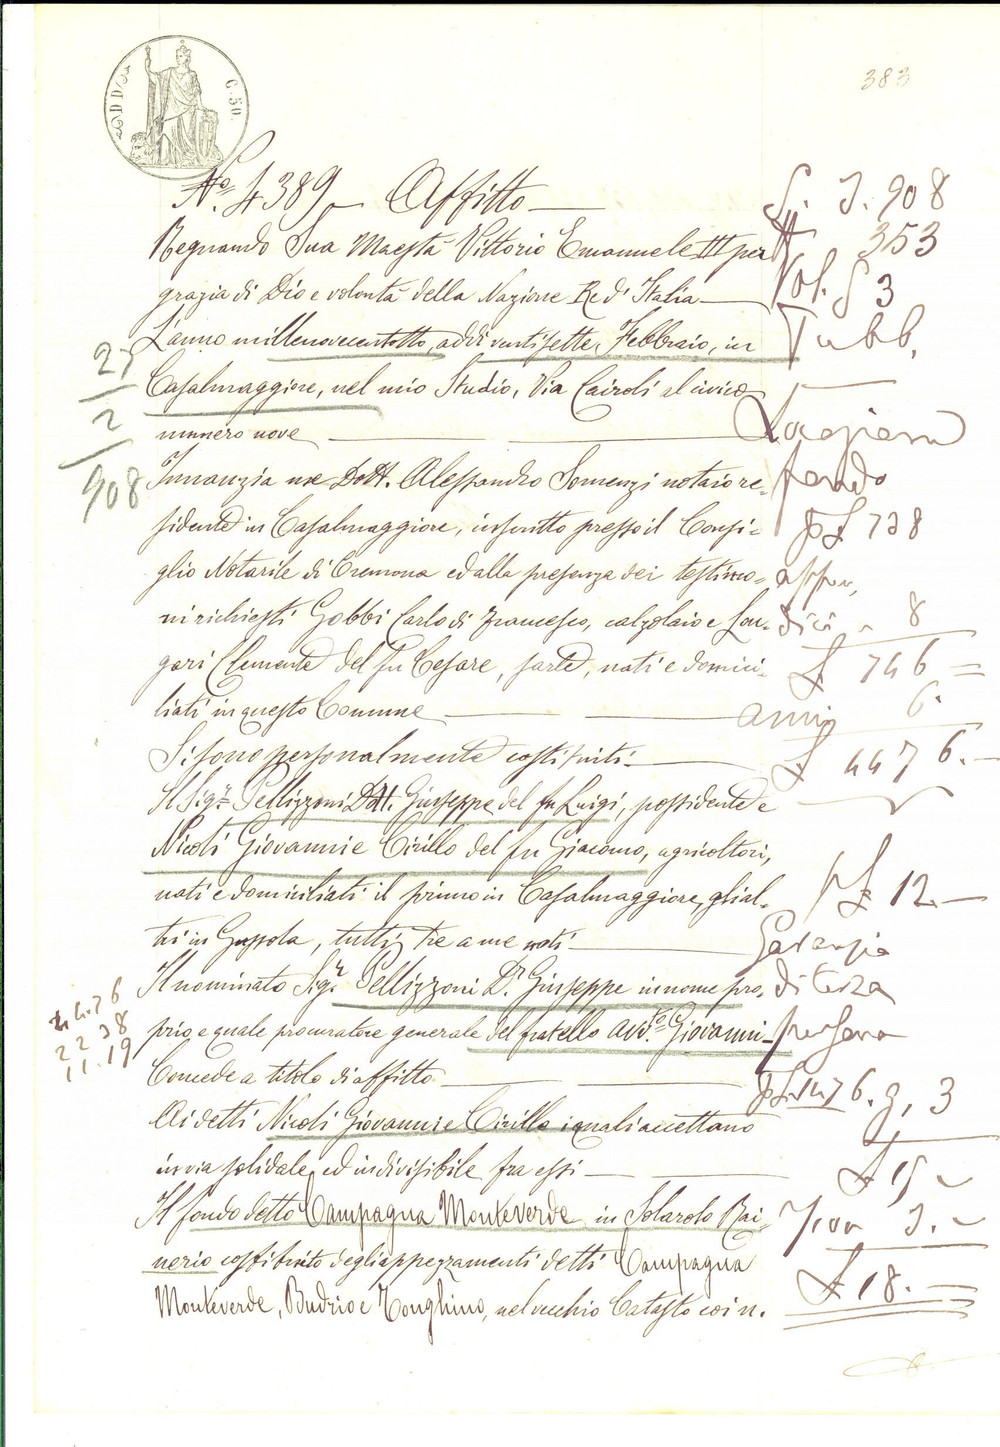 383
C. 50
N.° 4389 Affitto
Regnando Sua Maestà Vittorio Emanuele III per
grazia di Dio e volontà della Nazione Re d'Italia
L'anno millenovecentotto, addì ventisette, Febbraio, in
Casalmaggiore, nel mio Studio, Via Cairoli al civico
numero nove
Innanzi a me Dott. Alessandro Somenzi notaio re=
sidente in Casalmaggiore, inscritto presso il Consi-
glio Notarile di Cremona ed alla presenza dei testimo=
ni richiesti Gobbi Carlo di Francesco, calzolaio e Lon-
gari Clemente del fu Cesare, sarte, nati e domici-
liati in questo Comune
Si sono personalmente costituiti
Il Sig.r Pellizzoni Dott. Giuseppe del fu Luigi, possidente e
Nicoli Giovanni e Cirillo del fu Giacomo, agricoltori,
nati e domiciliati il primo in Casalmaggiore, gli al-
tri in Gussola, tutti tre a me noti
Il nominato Sig.r Pellizzoni D.r Giuseppe in nome pro-
prio e quale procuratore generale del fratello avv.to Giovanni
Concede a titolo di affitto
Ai detti Nicoli Giovanni e Cirillo i quali accettano
in via solidale ed indivisibile fra essi
Il fondo detto Campagna Monteverde in Solarolo Rai-
nerio costituito degli appezzamenti detti Campagna
Monteverde, Budrio e Longhino, nel vecchio Catasto coi n.
27
2
908
4476
2238
11.19
908
353
Vol. 3
Pubb.
738
8
£ 746 =
anni 6
£ 4476.-
£ 12.-
Garanzia
di terza
persona
3
£ 15
3.-
£ 18.-